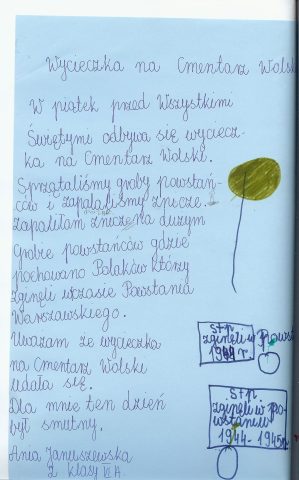 Wycieczka na Cmentarz Wolski
W piątek przed Wszystkimi
Świętymi odbywa się wyciecz-
ka na Cmentarz Wolski.
Sprzątaliśmy groby powstań-
ców i zapalaliśmy znicze.
Zapaliłam znicze na dużym
Grobie powstańców gdzie
pochowano Polaków którzy
zginęli wczasie Powstania
Warszawskiego.
Uważam że wycieczka
na Cmentarz Wolski
udała się.
Dla mnie ten dzień
był smutny.
Ania Januszewska
z klasy VI A.
ś+p.
zginęli w powst
1944 r.
ś+p.
zginęli w po-
wstaniu
1944-1945r.